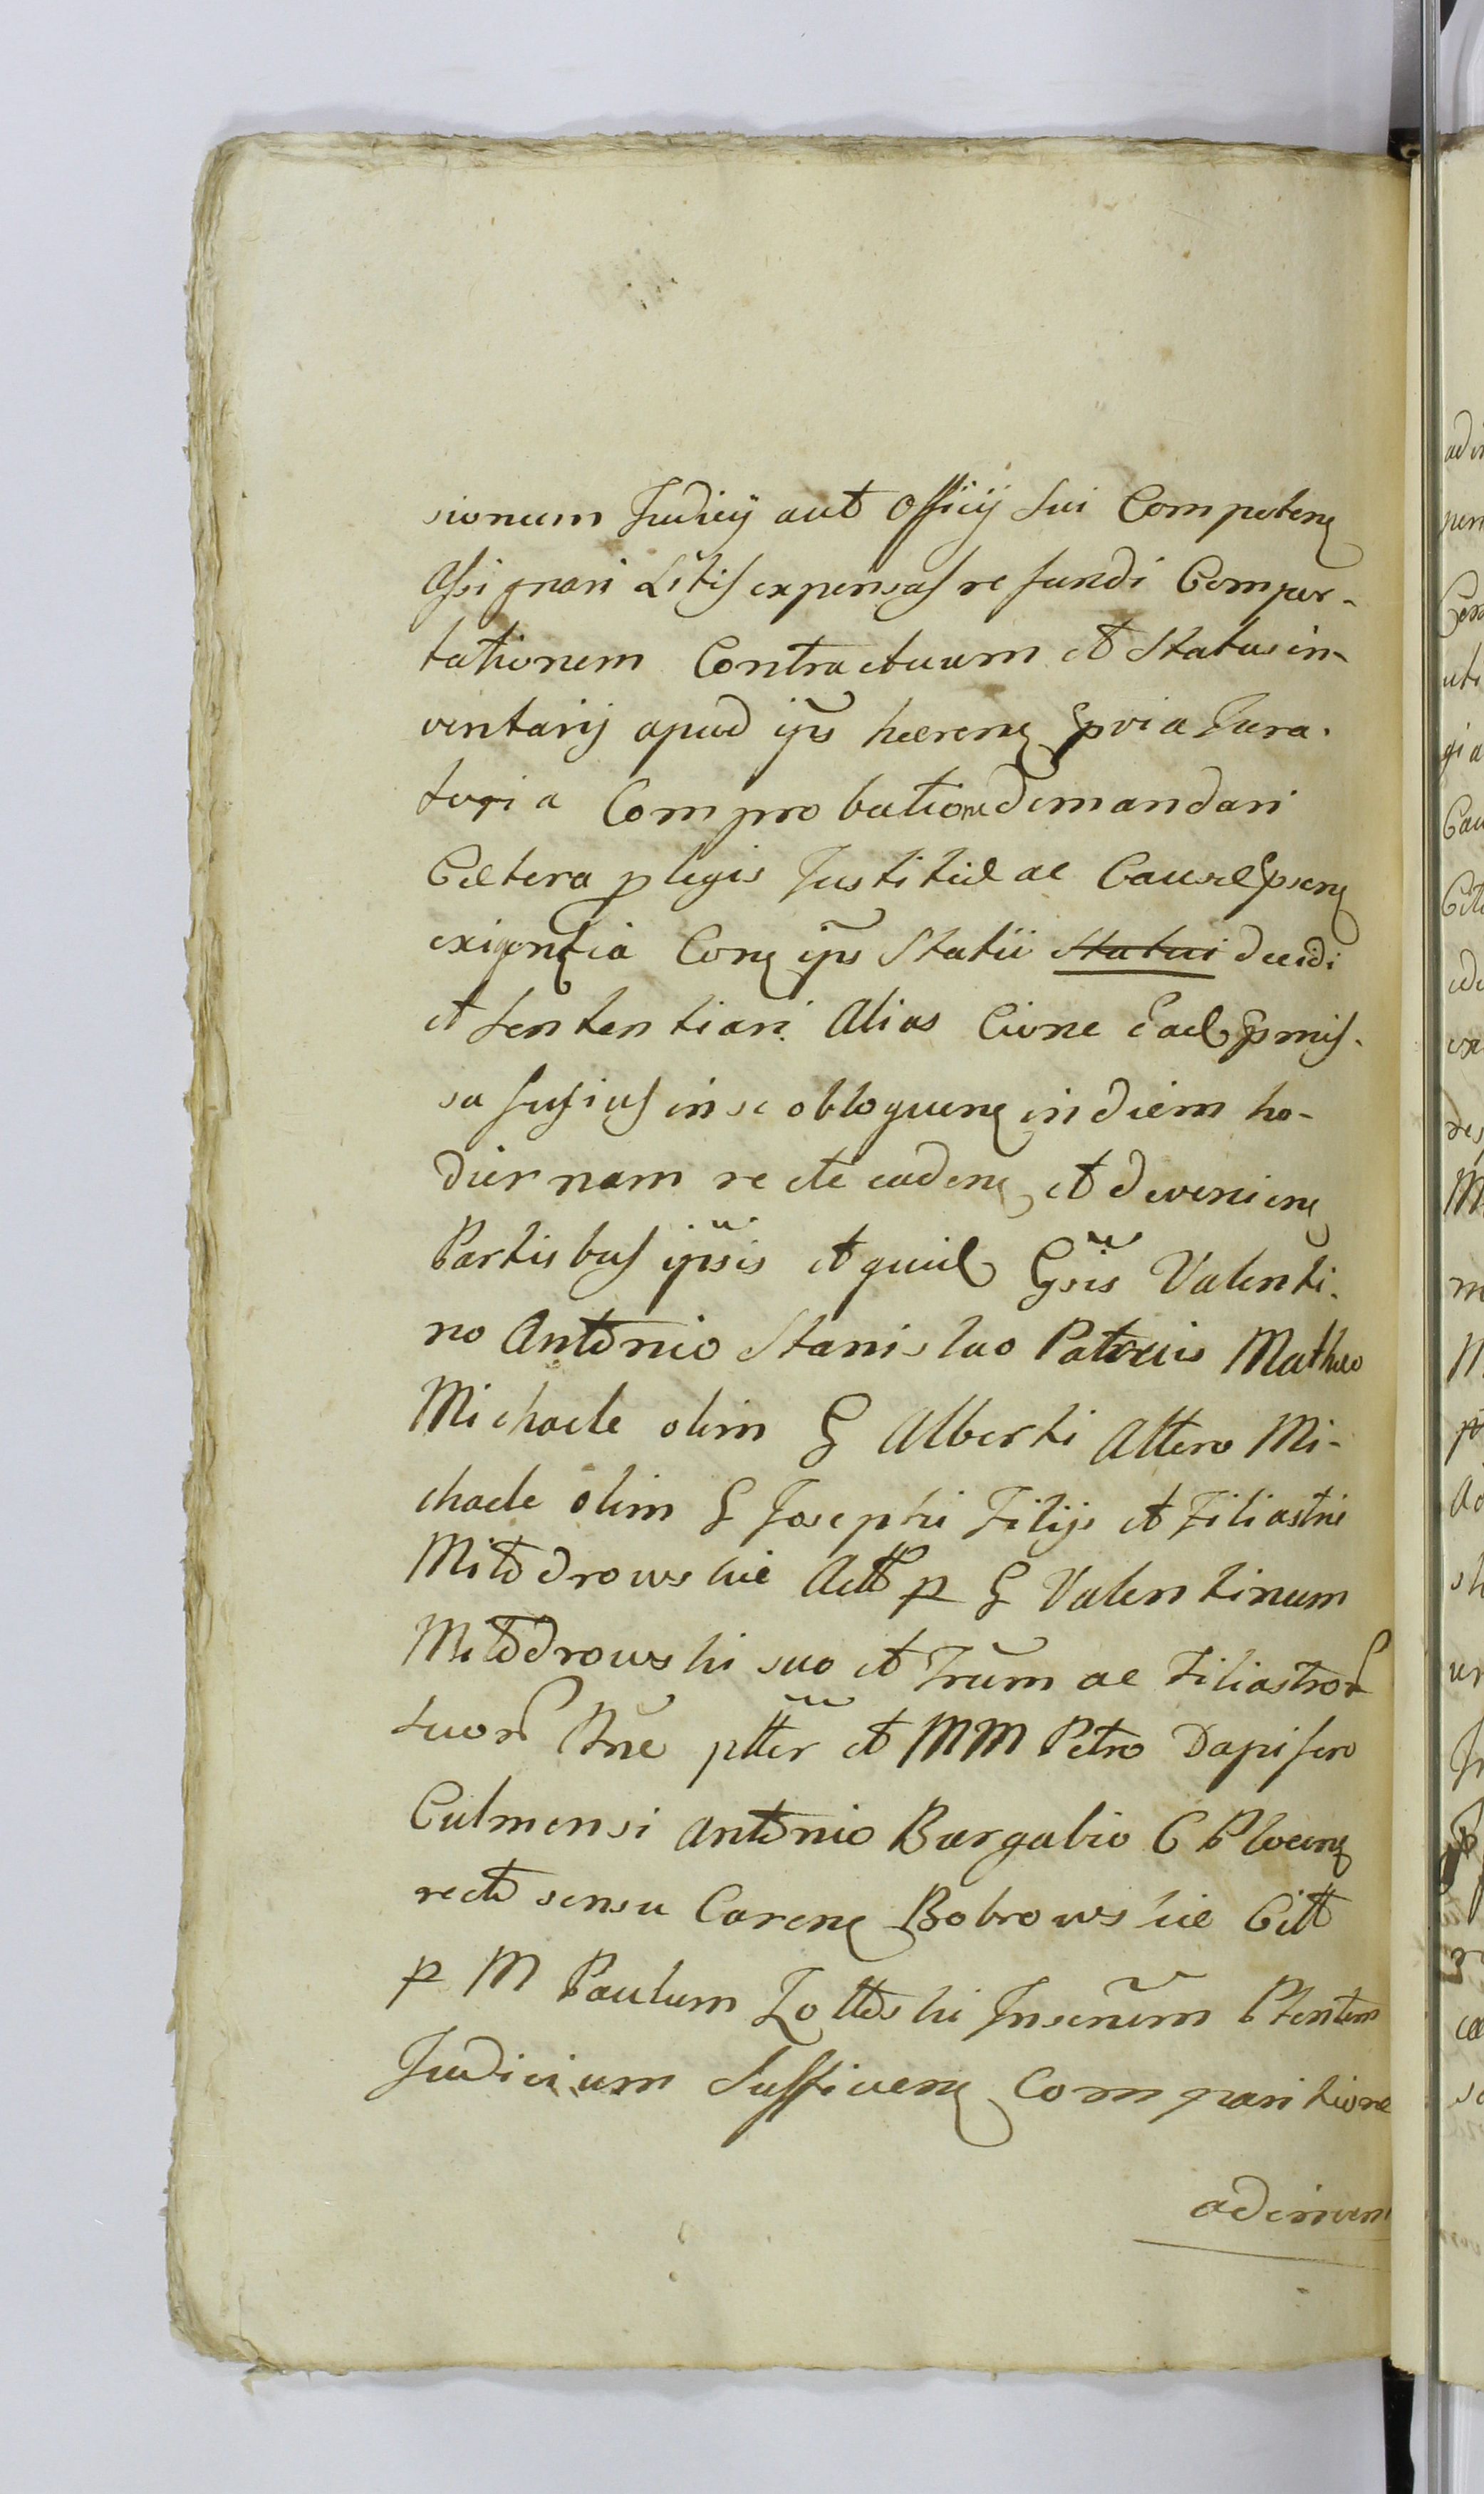 sionum Judicij aut Officij sui Competen
Assignari Litis expensas refundi Compor-
tationem Contractuum et Status in-
ventarij apud ips haeren pvia Jura-
toria Comprobatione demandari
Caetera p legis Justitiae ac Causae psen
exigentia Con ips Statui Statui decidi
et sententiari. Alias Cione Ead pmis-
sa fusius in se obloquen in diem ho-
diernam recte caden et devenien
Partibus ipsis et quid Gsis Valenti-
no Antonio Stanislao Patruis Mathaeo
Michaele olim G Alberti Altero Mi-
chaele olim G Josephi Filijs et Filiastris
Mitodrowskie Actt p G Valentinum
Mitodrowski suo et Frum ac Filiastror
suor Nne ptter et MM Petro Dapifero
Culmensi Antonio Burgrabio C Plocen
recto sensu Caren Bobrowskie Citt
p M Paulum Zottoski Insenum Ptentem
Judicium Sufficien Comparitione
adinven